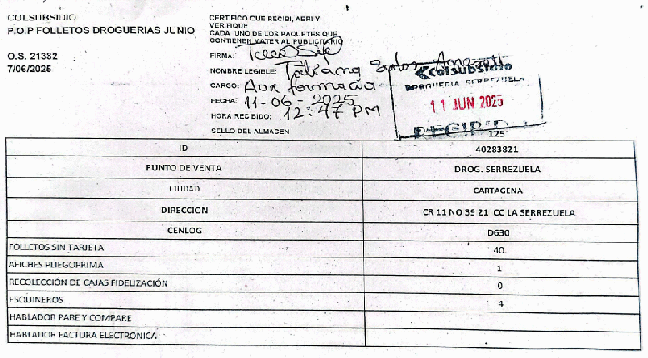 COLSUBSIDIO
P.O.P FOLLETOS DROGUERIAS JUNIO
O.S. 21382
7/06/2025
CERTIFICO QUE RECIBI, ABRI Y
VERIFIQUE
CADA UNO DE LOS PAQUETES QUE
CONTIENEN MATERIAL PUBLICITARIO
FIRMA:
NOMBRE LEGIBLE: Tatiana
CARGO: Aux farmacia
FECHA: 11-06-2025
HORA RECIBIDO: 12:47 PM
SELLO DEL ALMACEN
Colsubsidio
DROGUERIA SERREZUELA
11 JUN 2025
RECIBIDO
125
ID 40283821
PUNTO DE VENTA DROG. SERREZUELA
CIUDAD CARTAGENA
DIRECCION CR 11 NO 39 21 CC LA SERREZUELA
CENLOG DG30
FOLLETOS SIN TARJETA 40
AFICHES PLIEGO PRIMA 1
RECOLECCIÓN DE CAJAS FIDELIZACIÓN 0
ESQUINEROS 4
HABLADOR PARE Y COMPARE
HABLADOR FACTURA ELECTRONICA